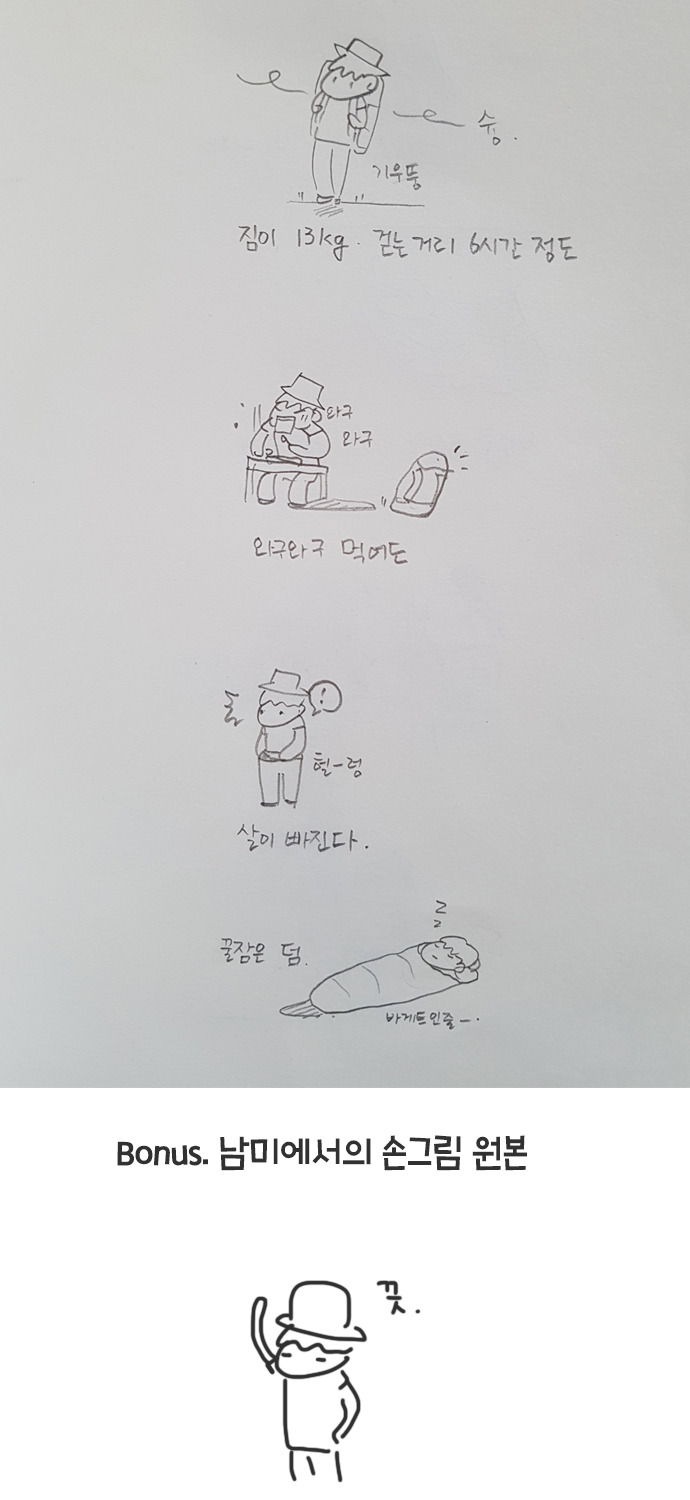 슝.
기우뚱
짐이 13kg. 걷는거리 6시간 정도
와구
와구
와구와구 먹어도
!
헐-렁
살이 빠진다.
꿀잠은 덤.
바게트인줄-.
Bonus. 남미에서의 손그림 원본
끗.